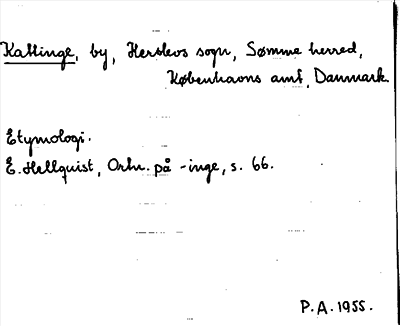 Kattinge, by, Herslevs sogn, Sømme herred,
Københavns amt, Danmark.
Etymologi.
E. Hellquist, Ortn. på -inge, s. 66.
P.A. 1955.